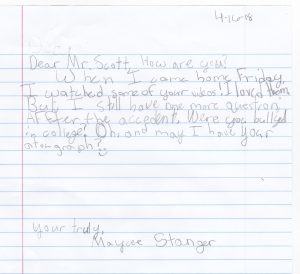 4-16-18
Dear Mr. Scott, How are you?
When I came home Friday,
I watched some of your videos! I loved them
But I still have one more question.
Affter the accedent, Were you bullyed
in college? Oh, and may I have your
atograph?
Your truly,
Maycee Stanger